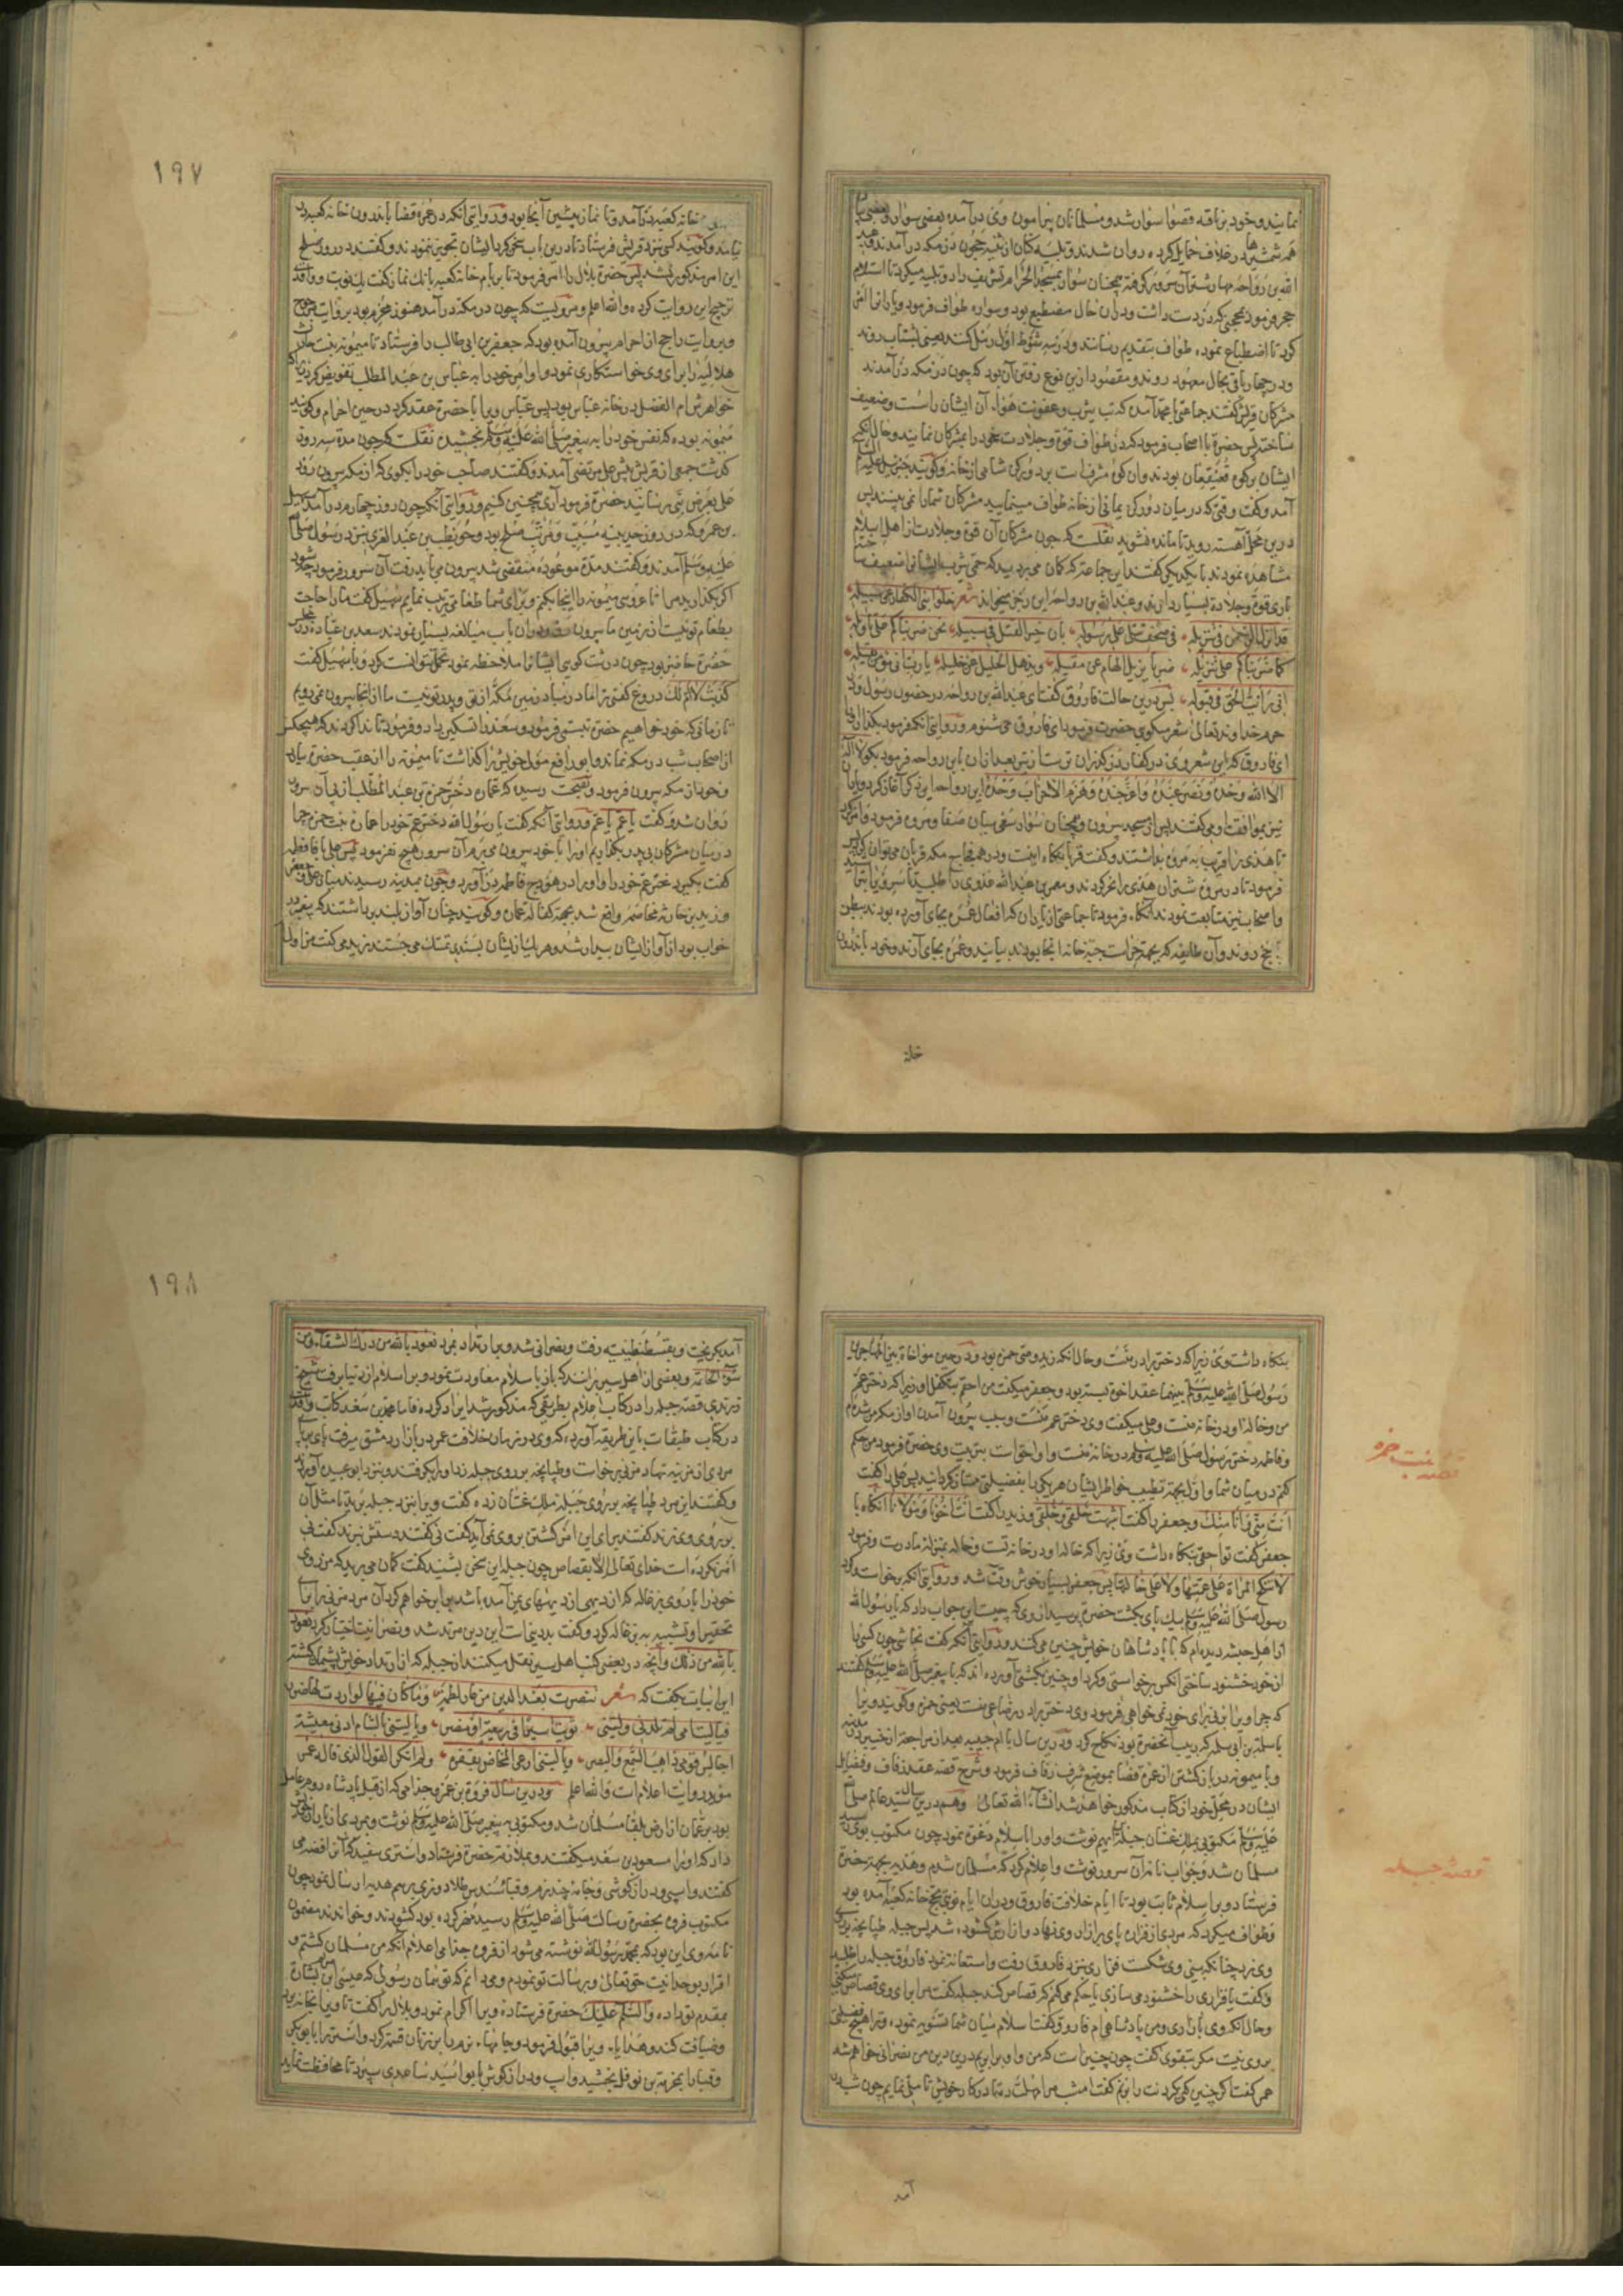 نمایند و خود بر ناقه قصوا سوار شد و مسلمانان پیرامون وی درآمده بعضی سوار و بعضی پیاده
همه شمشیرها در غلاف حمایل کرده روان شدند و تلبیه کنان از ثنیه حجون در مکه درآمدند و عبد
الله بن رواحه مهار شتر آن سرور گرفته همچنان سوار بمسجد الحرام تشریف داد و تلبیه میکرد تا استلام
حجر فرمود بمحجنی که در دست داشت و در آن حال مضطبع بود و سواره طواف فرمود و یارانرا امر
کرد تا اضطباع نموده طواف بتقدیم رسانند و در سه شوط اول رمل کنند یعنی بشتاب روند
و در چهار باقی بحال معهود روند و مقصود ازین نوع رفتن آن بود که چون در مکه درآمدند
مشرکان قریش گفتند جماعتی با محمد آمدند که تب یثرب و عفونت هوای آن ایشان را سست و ضعیف
ساخته پس حضرة با اصحاب فرمود که در طواف قوة و جلادت خود را بمشرکان نمایند و حال آنکه
ایشان بر کوه قعیقعان بودند و آن کوه مشرف است بر دو رکن شامی از خانه و گویند جبرئیل علیه السلام
آمد و گفت وقتی که در میان دو رکن یمانی از خانه طواف مینمایید مشرکان شما را نمی بینند پس
درین محل آهسته روید تا مانده نشوید نقلست که چون مشرکان آن قوة و جلادت از اهل اسلام
مشاهده نمودند با یکدیگر گفتند این جماعتی که گمان می بردید که حمی یثرب ایشانرا ضعیف ساخته
باری قوة و جلادة بسیار دارند و عبد الله بن رواحه این رجز میخواند شعر خلوا بنی الکفار عن سبیله
قد انزل الرحمن فی تنزیله فی صحف تتلی علی رسوله بان خیر القتل فی سبیله نحن ضربناکم علی تاویله
کما ضربناکم علی تنزیله ضربا یزیل الهام عن مقیله ویذهل الخلیل عن خلیله یا رب انی مومن بقیله
انی رایت الحق فی قبوله پس درین حالت فاروق گفت ای عبد الله بن رواحه در حضور رسول و در
حرم خداوند تعالی شعر میگوی حضرت فرمود ای فاروق می شنوم و روایتی آنکه فرمود بگذار او را
ای فاروق که این شعر وی در کفار زودگذران تر ست از تیر بعد ازان با ابن رواحه فرمود بگو لا اله
الا الله وحده و نصر عبده و اعز جنده و هزم الاحزاب وحده ابن رواحه این ذکر آغاز کرد و یاران
نیز بموافقت او می گفتند پس از مسجد بیرون و همچنان سوار سعی میان صفا و مروه فرمود و امر کرد
تا هدی را قریب به مروه بداشتند و گفت قربانگاه اینست و در همه فجاج مکه قربان می توان کرد پس
فرمود تا در مروه شتران هدی را نحر کردند و معمر بن عبد الله عدوی را طلبید تا سر وی را بتراشید
و اصحاب نیز متابعت نمودند آنگاه فرمود تا جماعتی از یاران که افعال عمره بجای آورده بودند ببطن
یاجج روند و آن طایفه که بجهة حراست جبه خانه آنجا بودند بیایند و عمره بجای آرند و خود باندرون
خانه
۱۹۷
خانه کعبه درآمد و تا نماز پیشین آنجا بود و روایتی آنکه در عمره قضا باندرون خانه کعبه در
نیامد و گویند کس نزد قریش فرستاد تا درین باب سخن کرد ایشان تجویز ننمودند و گفتند در روز صلح
این امر مذکور نشد پس حضرة بلال را امر فرمود تا بر بام خانه کعبه بانک نماز گفت یک نوبت و واقدی
ترجیح این روایت کرده والله اعلم و مرویست که چون در مکه درآمد هنوز محرم بود بروایت مرجوح
و بروایت راجح از احرام بیرون آمده بود که جعفر بن ابی طالب را فرستاد تا میمونه بنت حارث
هلالیه را برای وی خواستکاری نمود و او امر خود را به عباس بن عبد المطلب تفویض کرد زیرا که
خواهرش ام الفضل در خانه عباس بود پس عباس ویرا با حضرة عقد کرد در حین احرام و گویند
میمونه بوده که نفس خود را به پیغمبر صلی الله علیه وسلم بخشید نقلست که چون مدة سه روز
گذشت جمعی از قریش پیش علی مرتضی آمدند و گفتند صاحب خود را بگوی که از مکه بیرون رود
علی بعرض نبی رسانید حضرة فرمود آری همچنین کنیم و روایتی آنکه چون روز چهارم درآمد سهیل
بن عمرو که در روز حدیبیه مسبب و مرتب صلح بود و حویطب بن عبد العزی نزد رسول صلی الله
علیه وسلم آمدند و گفتند مدة موعوده منقضی شد بیرون می باید رفت آن سرور فرمود چه شود
اگر بگذارید مرا تا عروسی میمونه را اینجا بکنم و برای شما طعامی ترتیب نمایم سهیل گفت ما را حاجت
بطعام تو نیست از زمین ما بیرون رو و در آن باب مبالغه بسیار نمودند سعد بن عباده در مجلس
حضرة حاضر بود چون درشت گویی ایشانرا ملاحظه نمود تحمل نتوانست کرد و با سهیل گفت
کذبت لا ام لک دروغ گفتی ترا مادر مباد زمین مکه از تو و پدر تو نیست ما از اینجا بیرون نمی رویم
تا زمانی که خود خواهیم حضرة تبسمی فرمود و سعد را تسکین داد و فرمود تا ندا کردند که هیچکس
از اصحاب شب در مکه نماند و ابو رافع مولی خویش را گذاشت تا میمونه را از عقب حضرة بیارد
و خود از مکه بیرون فرمود و بصحت رسیده که عماره دختر حمزة بن عبد المطلب از پی آن سرور
روان شد و گفت یا عم یا عم و روایتی آنکه گفت یا رسول الله دختر عم خود را عماره بنت حمزه چرا
در میان مشرکان بی پدر بگذاریم او را با خود بیرون می برم آن سرور هیچ نفرمود پس علی با فاطمه
گفت بگیر دختر عم خود را و او را در هودج فاطمه درآورد و چون بمدینه رسیدند میان علی و جعفر
و زید بن حارثه مخاصمه واقع شد بجهة کفالت عمان و گویند چنان آواز بلند برداشتند که پیغمبر در
خواب بود از آواز ایشان بیدار شد و هر یک از ایشان بسندی تمسک می جستند زید می گفت من اولی
بنکاه داشت وی زیرا که دختر برادر منست و حال آنکه زید وصی حمزه بود و در حین مواخاة بین المهاجرین
رسول صلی الله علیه وسلم بینهما عقد اخوة بسته بود و جعفر میگفت من احقم بتکفل او زیرا که دختر عم
من و خاله او در خانه منست و علی میگفت وی دختر عم منست و سبب بیرون آمدن او از مکه من شده ام
و فاطمه دختر رسول صلی الله علیه وسلم در خانه منست و او احق است بتربیت وی حضرة فرمود من حکم
کنم در میان شما و اول بجهة تطییب خواطر ایشان هر یکی را بفضیلتی ممتاز گردانید پس علی را گفت
انت منی و انا منک و جعفر را گفت اشبهت خلقی و خلقی و زید را گفت انت اخونا و مولانا آنگاه با
جعفر گفت تو احقی بنکاه داشت وی زیرا که خاله او در خانه تست و خاله بمنزله مادرست و فرمود
لا تنکح المراة علی عمتها ولا علی خالتها پس جعفر بسیار خوش وقت شد و روایتی آنکه برخاست و گرد
رسول صلی الله علیه وسلم بیک پای بگشت حضرة پرسید از وی که چیست این جواب داد که یا رسول الله
از اهل حبشه دیده ام که با پادشاهان خویش چنین می کنند و روایتی آنکه گفت نجاشی چون کسی را
از خود خشنود ساختی آنکس برخواستی و گرد او چنین بگشتی آورده اند که با پیغمبر صلی الله علیه وسلم گفتند
که چرا ویرا بزنی برای خود نمی خواهی فرمود وی دختر برادر رضاعی منست یعنی حمزه و گویند ویرا
با سلمة بن ابی سلمه که ربیب آنحضرة بود نکاح کرد و درین سال با ام حبیبه بعد از مراجعة از خیبر در مدینه
و با میمونه در بازگشتن از عمره قضا بموضع شرف زفاف فرمود و شرح قصه عقد و زفاف و فضایل
ایشان در محل خود از کتاب مذکور خواهد شد انشاء الله تعالی و هم درین سال سید عالم صلی الله
علیه وسلم مکتوبی بملک غسان جبلة بن ایهم نوشت و او را باسلام دعوة نمود چون مکتوب بوی رسید
مسلمان شد و جواب نامه آن سرور نوشت و اعلام کرد که مسلمان شدم و هدیه بجهة حضرة
فرستاد و بر اسلام ثابت بود تا ایام خلافت فاروق و در آن ایام نوبتی بحج خانه کعبه آمده بود
و طواف میکرد که مردی از فزاره پای بر ازار وی نهاد و ازارش گشوده شد پس جبله طپانچه بر روی
وی زد چنانکه بینی وی شکست فزاری نزد فاروق رفت و استغاثه نمود فاروق جبله را طلبید
و گفت یا فزاری را خشنود می سازی یا حکم می کنم که قصاص کند جبله گفت مرا برای وی قصاص میکنی
و حال آنکه وی بازاری و من پادشاهی ام فاروق گفت اسلام میان شما تسویه نموده و ترا هیچ فضیلتی
بر وی نیست مگر بتقوی گفت چون چنین است که من و او برابریم درین دین من نصرانی خواهم شد
عمر گفت اگر چنین کنی گردنت را بزنم گفت امشب مرا مهلت ده تا در کار خویش تاملی نمایم چون شب در
آمد
قصه بنت حمزه
قصه جبله
۱۹۸
آمد بگریخت و بقسطنطنیه رفت و نصرانی شد و بر ارتداد بمرد نعوذ بالله من درک الشقاء و من
سوء الخاتمه و بعضی از اهل سیر برانند که باز باسلام معاودت نمود و بر اسلام از دنیا برفت شیخ
تورپشتی قصه جبله را در کتاب اعلام بطریقی که مذکور شد ایراد کرده فاما محمد بن سعد کاتب واقدی
در کتاب طبقات باین طریقه آورده که وی در زمان خلافت عمر در بازار دمشق میرفت پای بر پای
مردی از مزینه نهاد مزنی برخاست و طپانچه بر روی جبله زد او را بگرفتند و نزد ابو عبیده آوردند
و گفتند این مرد طپانچه بر روی جبله ملک غسان زده گفت ویرا نزد جبله برید تا مثل آن
بر روی وی زند گفتند برای این امر کشتن بر وی نمی آید گفت نی گفتند دستش نبرند گفت نی
امر نکرده است خدای تعالی الا بقصاص چون جبله این سخن بشنید گفت گمان می برید که من روی
خود را با روی بزغاله که از دیهی از دیههای یمن آمده باشد برابر خواهم کرد آن مرد مزنی را بنا
تحقیر او تشبیه به بزغاله کرد و گفت بد دینی است این دین مرتد شد و نصرانیت اختیار کرد نعوذ
بالله من ذلک و آنچه در بعضی کتب اهل سیر نقل میکنند از جبله که از ارتداد خویش پشیمان گشته
این ابیات بگفت که شعر تنصرت بعد الدین من عار لطمة وما کان فیها لو صبرت لها ضرر
فیا لیت امی لم تلدنی ولیتنی ثویت اسیرا فی ربیعة او مضر ویا لیتنی بالشام ادنی معیشة
اجالس قومی ذاهب السمع والبصر ویا لیتنی ارعی المخاض بقفرة ولم انکر القول الذی قاله عمر
موید روایت اعلام است والله اعلم و درین سال فروة بن عمرو جذامی که از قبل پادشاه روم عامل
بود بر عمان از ارض بلقا مسلمان شد و مکتوبی به پیغمبر صلی الله علیه وسلم نوشت و بمردی از یاران خویش
داد که او را مسعود بن سعد میگفتند و بملازمت حضرة فرستاد و استری سفید که آنرا فضه می
گفتند و اسپی و درازگوشی و جامه چند نرم و قبای سندس طلا دوزی برسم هدیه ارسال نمود چون
مکتوب فروه بحضرة رسالت صلی الله علیه وسلم رسید مهر کرده بود گشودند و خواندند مضمون
نامه وی این بود که بمحمد رسول الله نوشته می شود از فروه جذامی اعلام آنکه من مسلمان گشتم و
اقرار بوحدانیت حق تعالی و برسالت تو نمودم و می دانم که تو همان رسولی که عیسی بن مریم بشارة
بمقدم تو داده والسلم علیک حضرة فرستاده ویرا اکرام نمود و بلال را گفت تا ویرا بخانه برد
و ضیافت کند و هدایای ویرا قبول فرمود و جامها را بر زنان قسمة کرد و استر را بابو بکر
و قبا را بمخرمة بن نوفل بخشید و اسپ و درازگوش بابو اسید ساعدی سپرد تا محافظت نماید